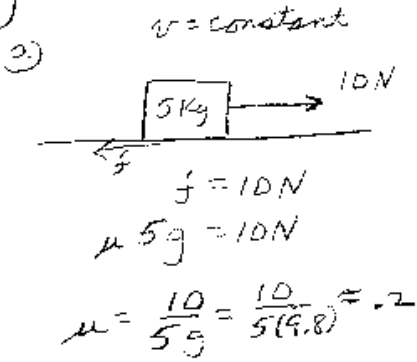 v = constant
2)
5 Kg
10 N
f
f = 10N
μ 5g = 10N
μ = 10/5g = 10/5(9.8) ≈ .2